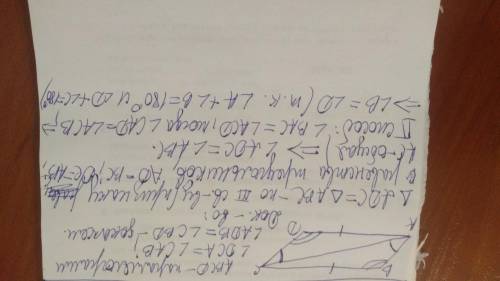 ABCD - параллелограмм
∠DCA = ∠CAB;
∠ADB = ∠CBD - доказать.
Док-во:
△ADC = △ABC - по III
в равенства треугольников AD = BC, DC = AB,
AC - общая ⇒ ∠ADC = ∠ABC.
II способ: ∠BAC = ∠ACD, тогда ∠CAD = ∠ACB, ⇒
⇒ ∠B = ∠D (т.к. ∠A + ∠B = 180° и ∠D + ∠C = 180°)
A
B
C
D